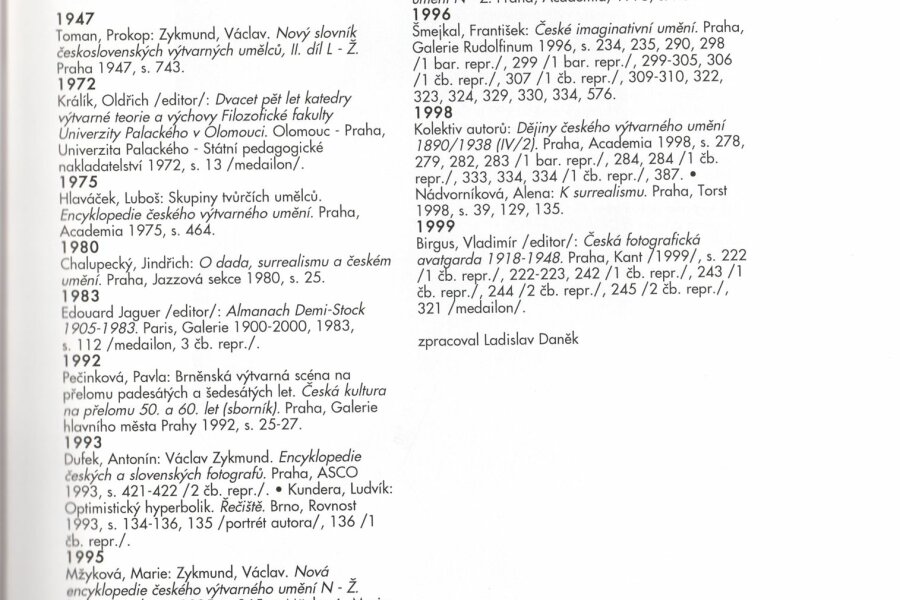 1947
Toman, Prokop: Zykmund, Václav. Nový slovník
československých výtvarných umělců, II. díl L - Ž.
Praha 1947, s. 743.
1972
Králík, Oldřich /editor/: Dvacet pět let katedry
výtvarné teorie a výchovy Filozofické fakulty
Univerzity Palackého v Olomouci. Olomouc - Praha,
Univerzita Palackého - Státní pedagogické
nakladatelství 1972, s. 13 /medailon/.
1975
Hlaváček, Luboš: Skupiny tvůrčích umělců.
Encyklopedie českého výtvarného umění. Praha,
Academia 1975, s. 464.
1980
Chalupecký, Jindřich: O dada, surrealismu a českém
umění. Praha, Jazzová sekce 1980, s. 25.
1983
Edouard Jaguer /editor/: Almanach Demi-Stock
1905-1983. Paris, Galerie 1900-2000, 1983,
s. 112 /medailon, 3 čb. repr./.
1992
Pečinková, Pavla: Brněnská výtvarná scéna na
přelomu padesátých a šedesátých let. Česká kultura
na přelomu 50. a 60. let (sborník). Praha, Galerie
hlavního města Prahy 1992, s. 25-27.
1993
Dufek, Antonín: Václav Zykmund. Encyklopedie
českých a slovenských fotografů. Praha, ASCO
1993, s. 421-422 /2 čb. repr./. • Kundera, Ludvík:
Optimistický hyperbolik. Řečiště. Brno, Rovnost
1993, s. 134-136, 135 /portrét autora/, 136 /1
čb. repr./.
1995
Mžyková, Marie: Zykmund, Václav. Nová
encyklopedie českého výtvarného umění N - Ž.
1996
Šmejkal, František: České imaginativní umění. Praha,
Galerie Rudolfinum 1996, s. 234, 235, 290, 298
/1 bar. repr./, 299 /1 bar. repr./, 299-305, 306
/1 čb. repr./, 307 /1 čb. repr./, 309-310, 322,
323, 324, 329, 330, 334, 576.
1998
Kolektiv autorů: Dějiny českého výtvarného umění
1890/1938 (IV/2). Praha, Academia 1998, s. 278,
279, 282, 283 /1 bar. repr./, 284, 284 /1 čb.
repr./, 333, 334, 334 /1 čb. repr./, 387. •
Nádvorníková, Alena: K surrealismu. Praha, Torst
1998, s. 39, 129, 135.
1999
Birgus, Vladimír /editor/: Česká fotografická
avatgarda 1918-1948. Praha, Kant /1999/, s. 222
/1 čb. repr./, 222-223, 242 /1 čb. repr./, 243 /1
čb. repr./, 244 /2 čb. repr./, 245 /2 čb. repr./,
321 /medailon/.
zpracoval Ladislav Daněk